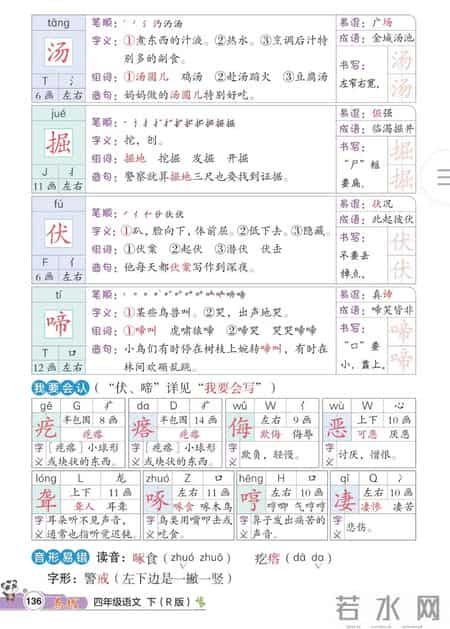 tāng
汤
T 氵
6画 左右
笔顺：
字义：①煮东西的汁液。②热水。③烹调后汁特
别多的副食。
组词：①汤圆儿 鸡汤 ②赴汤蹈火 ③豆腐汤
造句：妈妈做的汤圆儿特别好吃。
易混：广场
成语：金城汤池
书写：
左窄右宽。
汤
汤
jué
掘
J 扌
11画 左右
笔顺：
字义：挖，刨。
组词：掘地 挖掘 发掘 开掘
造句：警察就算掘地三尺也要找到证据。
易混：倔强
成语：临渴掘井
书写：
“尸”框
要扁。
掘
掘
fú
伏
F 亻
6画 左右
笔顺：
字义：①趴，脸向下，体前屈。②低下去。③隐藏。
组词：①伏案 ②起伏 ③潜伏 伏击
造句：他每天都伏案写作到深夜。
易混：状况
成语：此起彼伏
书写：
不要丢
掉点。
伏
伏
tí
啼
T 口
12画 左右
笔顺：
字义：①某些鸟兽叫。②哭，出声地哭。
组词：①啼叫 虎啸猿啼 ②啼哭 哭哭啼啼
造句：小鸟们有时停在树枝上婉转啼叫，有时在
林间欢蹦乱跳。
易混：真谛
成语：啼笑皆非
书写：
“口”要
小，靠上。
啼
啼
我要会认（“伏、啼”详见“我要会写”）
gē G 疒
疙 半包围 8画
疙瘩
字义 [疙瘩]小球形
或块状的东西。
da D 疒
瘩 半包围 14画
疙瘩
字义 [疙瘩]小球形
或块状的东西。
wǔ W 亻
侮 左右 9画
欺侮 侮辱
字义 欺负，轻慢。
wù W 心
恶 上下 10画
可恶 厌恶
字义 讨厌，憎恨。
lóng L 龙
聋 上下 11画
聋人 耳聋
字义 耳朵听不见声音，
通常也指听觉迟钝。
zhuó Z 口
啄 左右 11画
啄食 啄木鸟
字义 鸟类用嘴叩击或
吃食。
hēng H 口
哼 左右 10画
哼唧 哼哼
字义 鼻子发出痛苦的
声音。
qī Q 冫
凄 左右 10画
凄惨 凄苦
字义 悲伤。
音形易错 读音：啄食（zhuó zhuō） 疙瘩（dā da）
字形：警戒（左下边是一撇一竖）
136 四年级语文 下（R版）
若水网